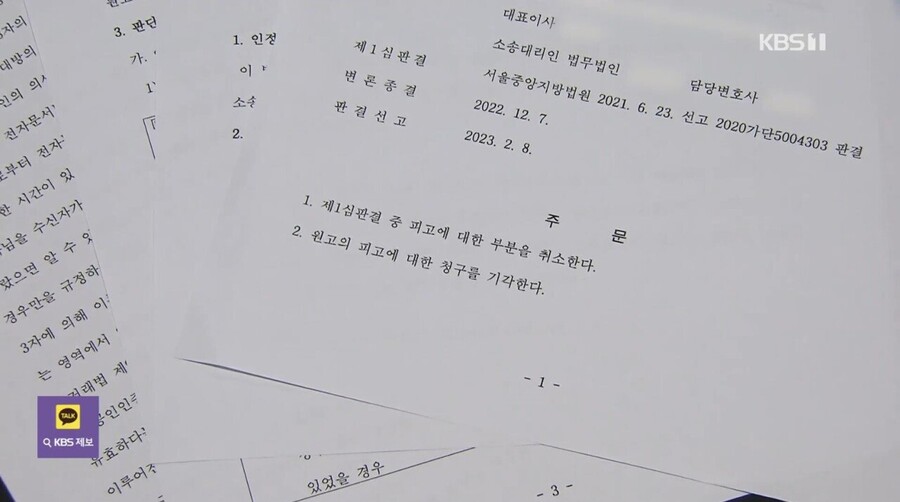 KBS 1
대표이사
소송대리인 법무법인
담당변호사
제1심판결
서울중앙지방법원 2021. 6. 23. 선고 2020가단5004303 판결
변론종결
2022. 12. 7.
판결선고
2023. 2. 8.
주 문
1. 제1심판결 중 피고에 대한 부분을 취소한다.
2. 원고의 피고에 대한 청구를 기각한다.
- 1 -
3. 판단
가.
1. 인정
이
소송
2.
대방의
인의 의사
전자문서
로부터 전자
한 시간이 있
님을 수신자가
랐으면 알 수 있
경우만을 규정하
3자에 의해 이
는 영역에서
거래법 제
공인인
유효하다
이루어
있었을 경우
- 3 -
TALK
KBS 제보